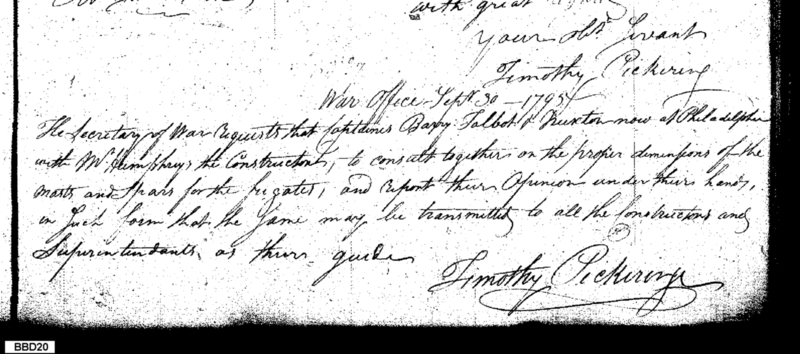 with great
Your Obt. Servant
Timothy Pickering
War Office Sept. 30 - 1795
The Secretary of War requests that Captains Barry Talbot & Truxton now at Philadelphia
with Mr. Humphrys the Constructor, to consult together on the proper dimensions of the
masts and Spars for the frigates, and report their Opinion under their hands,
in Such form that the Same may be transmitted to all the Constructors and
Superintendants, as their guide
Timothy Pickering
BBD20